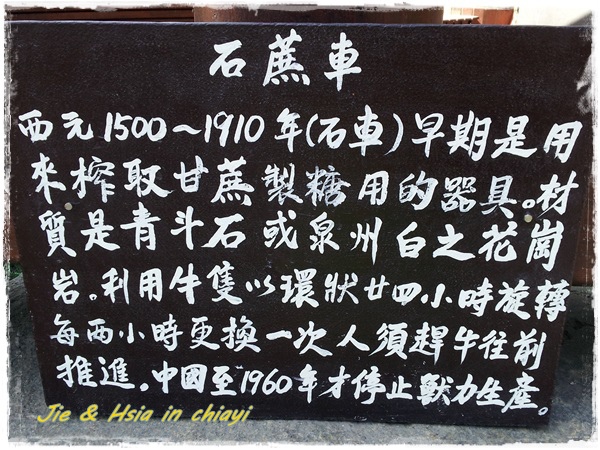 石蔗車
西元1500~1910年(石車)早期是用
來榨取甘蔗製糖用的器具。材
質是青斗石或泉州白之花崗
岩。利用牛隻以環狀廿四小時旋轉
每兩小時更換一次人須趕牛往前
推進。中國至1960年才停止獸力生產。
Jie & Hsia in chiayi